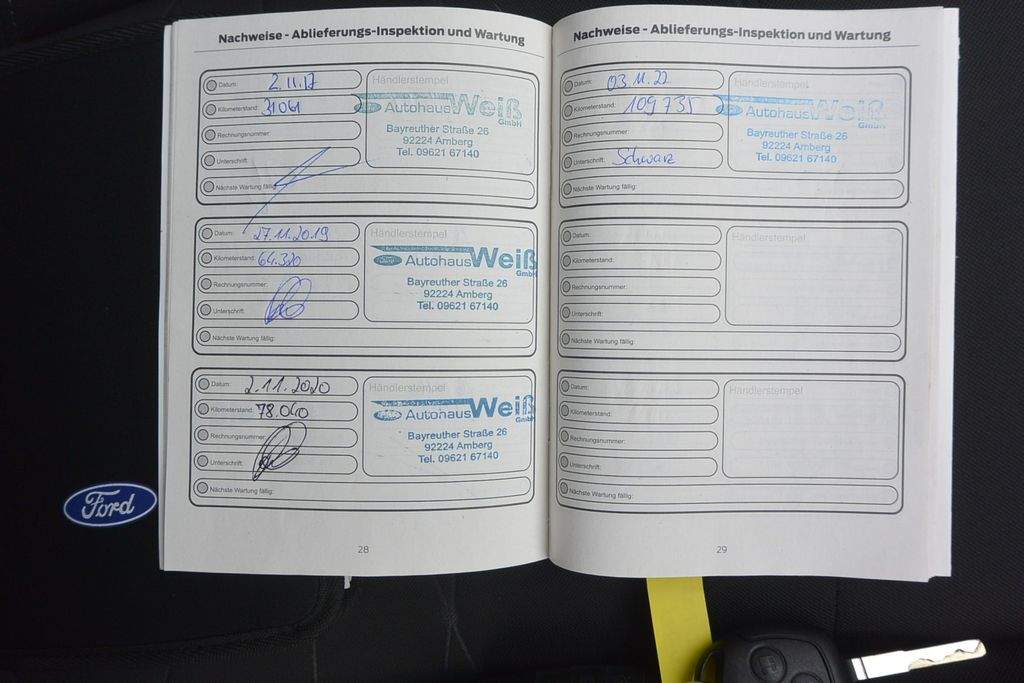 Nachweise - Ablieferungs-Inspektion und Wartung
Datum: 2.11.17
Kilometerstand: 31061
Rechnungsnummer:
Unterschrift:
Nächste Wartung fällig:
Händlerstempel
Autohaus Weiß
GmbH
Bayreuther Straße 26
92224 Amberg
Tel. 09621 67140
Datum: 27.11.2019
Kilometerstand: 64.320
Rechnungsnummer:
Unterschrift:
Nächste Wartung fällig:
Händlerstempel
Ford
Autohaus Weiß
GmbH
Bayreuther Straße 26
92224 Amberg
Tel. 09621 67140
Datum: 2.11.2020
Kilometerstand: 78.040
Rechnungsnummer:
Unterschrift:
Nächste Wartung fällig:
Händlerstempel
Ford
Autohaus Weiß
GmbH
Bayreuther Straße 26
92224 Amberg
Tel. 09621 67140
28
Nachweise - Ablieferungs-Inspektion und Wartung
Datum: 03.11.22
Kilometerstand: 109735
Rechnungsnummer:
Unterschrift: Schwarz
Nächste Wartung fällig:
Händlerstempel
Autohaus Weiß
GmbH
Bayreuther Straße 26
92224 Amberg
Tel. 09621 67140
Datum:
Kilometerstand:
Rechnungsnummer:
Unterschrift:
Nächste Wartung fällig:
Händlerstempel
Datum:
Kilometerstand:
Rechnungsnummer:
Unterschrift:
Nächste Wartung fällig:
Händlerstempel
29
Ford